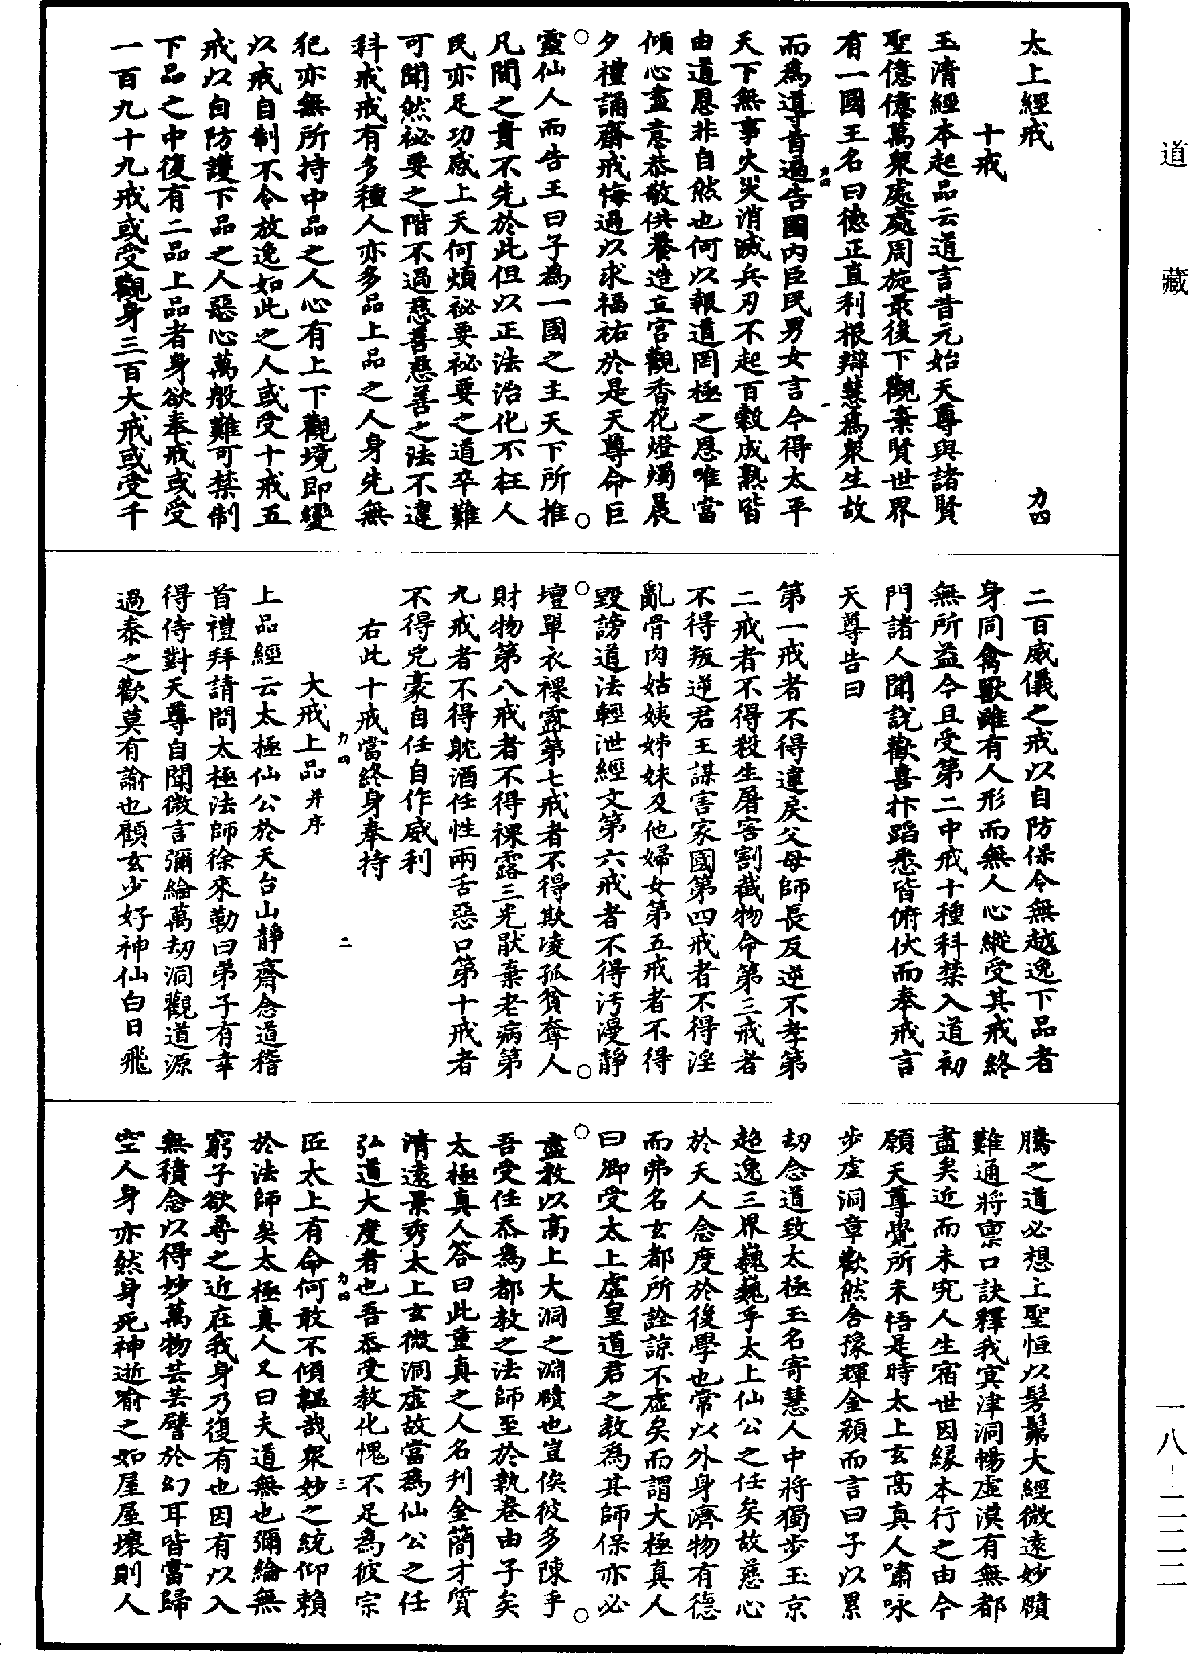 道藏
太上經戒
力四
十戒
玉清經本起品云道言昔元始天尊與諸賢
聖億億萬衆處處周旋最後下觀棄賢世界
有一國王名曰德正直利根辯慧為衆生故
而為導首過告國內臣民男女言今得太平
力四
一
天下無事火災消滅兵刃不起百穀成熟皆
由道恩非自然也何以報道罔極之恩唯當
傾心盡意恭敬供養造立宮觀香花燈燭晨
夕禮誦齋戒悔過以求福祐於是天尊命巨
靈仙人而告王曰子為一國之主天下所推
凡間之貴不先於此但以正法治化不枉人
民亦足功感上天何煩祕要祕要之道卒難
可聞然祕要之階不過慈善慈善之法不違
科戒戒有多種人亦多品上品之人身先無
犯亦無所持中品之人心有上下觀境即變
以戒自制不令放逸如此之人或受十戒五
戒以自防護下品之人惡心萬般難可禁制
下品之中復有二品上品者身欲奉戒或受
一百九十九戒或受觀身三百大戒或受千
二百威儀之戒以自防保令無越逸下品者
身同禽獸雖有人形而無人心縱受其戒終
無所益今且受第二中戒十種科禁入道初
門諸人聞說歡喜抃蹈悉皆俯伏而奉戒言
天尊告曰
第一戒者不得違戾父母師長反逆不孝第
二戒者不得殺生屠害割截物命第三戒者
不得叛逆君王謀害家國第四戒者不得淫
亂骨肉姑姨姊妹及他婦女第五戒者不得
毀謗道法輕泄經文第六戒者不得污漫靜
壇單衣裸露第七戒者不得欺凌孤貧奪人
財物第八戒者不得裸露三光厭棄老病第
九戒者不得躭酒任性兩舌惡口第十戒者
不得兇豪自任自作威利
右此十戒當終身奉持
力四
二
大戒上品并序
上品經云太極仙公於天台山靜齋念道稽
首禮拜請問太極法師徐來勒曰弟子有幸
得侍對天尊自聞微言彌綸萬劫洞觀道源
過泰之歡莫有諭也顧玄少好神仙白日飛
騰之道必想上聖恒以髣髴大經微遠妙賾
難通將禀口訣釋我冥津洞暢虛漠有無都
盡矣近而未究人生宿世因緣本行之由今
願天尊覺所未悟是時太上玄高真人嘯咏
步虛洞章歡然含豫輝金顏而言曰子以累
劫念道致太極玉名寄慧人中將獨步玉京
超逸三界巍巍乎太上仙公之任矣故慈心
於天人念度於後學也常以外身濟物有德
而弗名玄都所詮諒不虛矣而謂太極真人
曰卿受太上虛皇道君之教為其師保亦必
盡教以高上大洞之淵賾也豈俟彼多陳乎
吾受任忝為都教之法師至於執卷由子矣
太極真人答曰此童真之人名刋金簡才質
清遠景秀太上玄微洞虛故當為仙公之任
弘道大度者也吾忝受教化愧不足為彼宗
力四
三
匠太上有命何敢不傾轀哉衆妙之統仰賴
於法師矣太極真人又曰夫道無也彌綸無
窮子欲尋之近在我身乃復有也因有以入
無積念以得妙萬物芸芸譬於幻耳皆當歸
空人身亦然身死神逝喻之如屋屋壞則人
一八-二二二